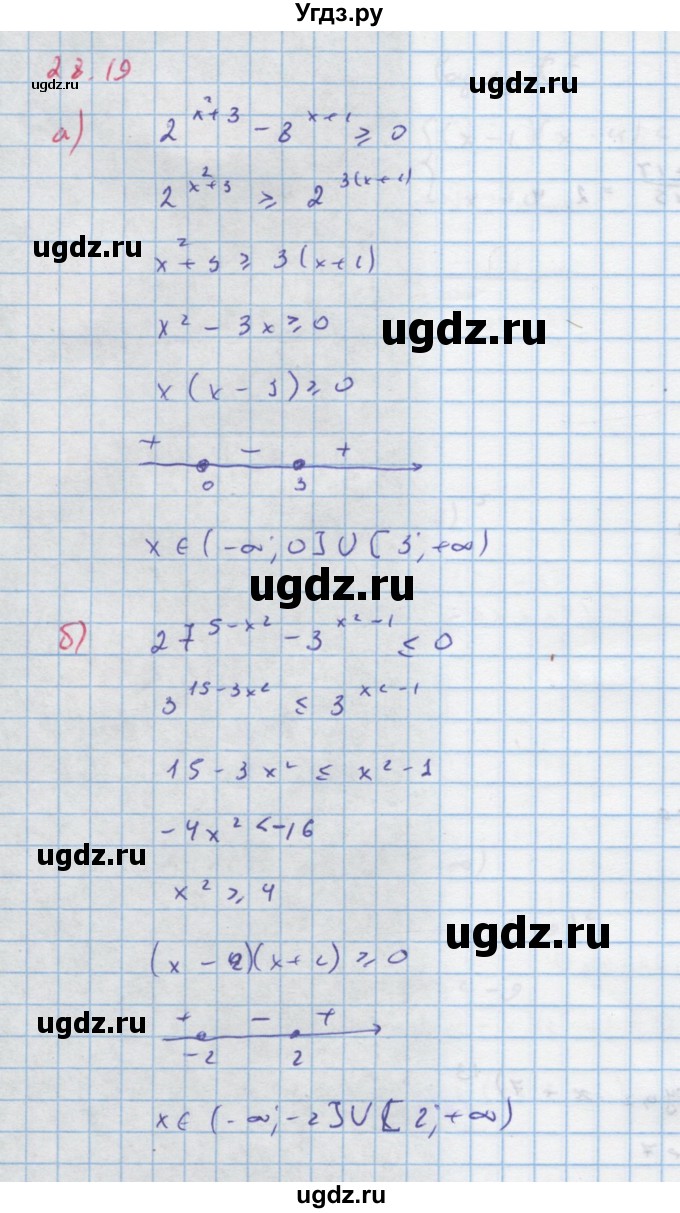 Угдз.ру
28.19
ugdz.ru
ugdz.ru
а) 2^(x²+3) - 8^(x+1) ≥ 0
2^(x²+3) ≥ 2^(3(x+1))
ugdz.ru
x² + 3 ≥ 3(x+1)
x² - 3x ≥ 0
ugdz.ru
x(x - 3) ≥ 0
+ - +
0 3
x ∈ (-∞; 0] ∪ [3; +∞)
ugdz.ru
б) 27^(5-x²) - 3^(x²-1) ≤ 0
3^(15-3x²) ≤ 3^(x²-1)
15 - 3x² ≤ x² - 1
-4x² < -16
ugdz.ru
x² ≥ 4
ugdz.ru
(x - 2)(x+2) ≥ 0
ugdz.ru
+ - +
-2 2
x ∈ (-∞; -2] ∪ [2; +∞)
ugdz.ru